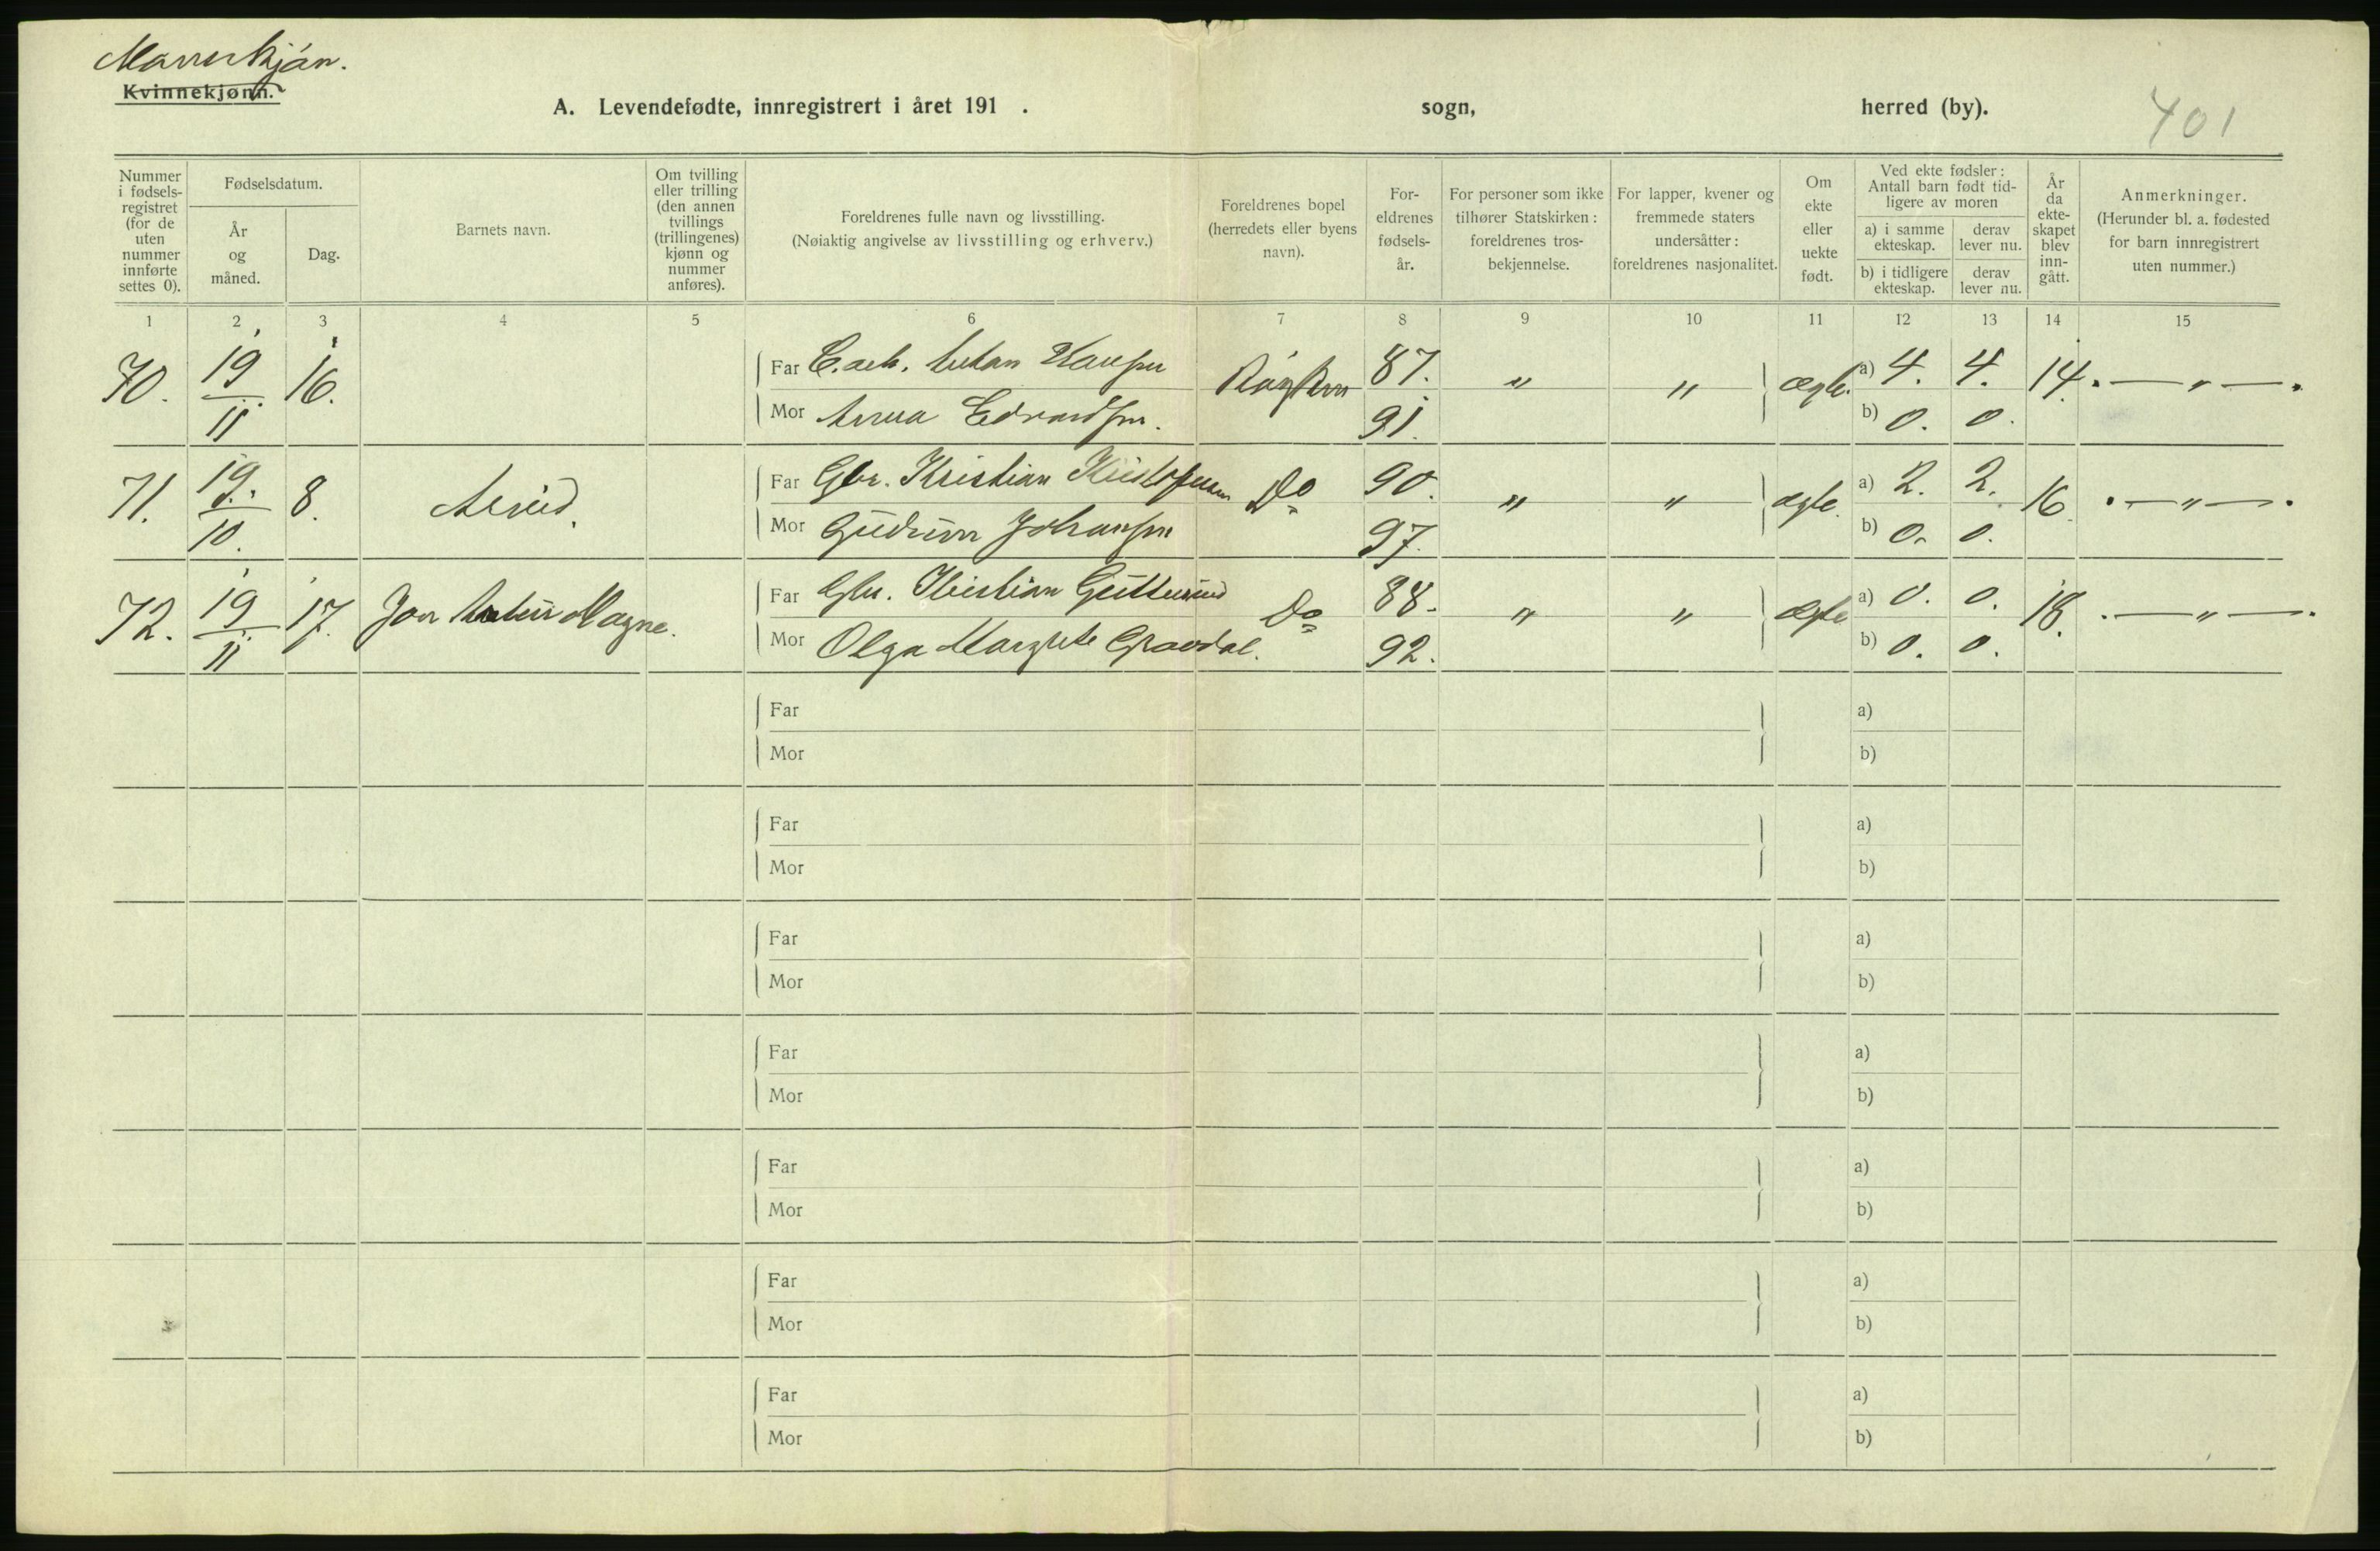 Mannkjøn.
Kvinnekjønn.
A. Levendefødte, innregistrert i året 191 . sogn, herred (by).
401
Nummer i fødsels- registret (for de uten nummer innførte settes 0).
Fødselsdatum.
År og måned.
Dag.
Barnets navn.
Om tvilling eller trilling (den annen tvillings (trillingenes) kjønn og nummer anføres).
Foreldrenes fulle navn og livsstilling.
(Nøiaktig angivelse av livsstilling og erhverv.)
Foreldrenes bopel (herredets eller byens navn).
For- eldrenes fødsels- år.
For personer som ikke tilhører Statskirken: foreldrenes tros- bekjennelse.
For lapper, kvener og fremmede staters undersåtter: foreldrenes nasjonalitet.
Om ekte eller uekte født.
Ved ekte fødsler: Antall barn født tid- ligere av moren
a) i samme ekteskap.
derav lever nu.
b) i tidligere ekteskap.
derav lever nu.
År da ekte- skapet blev inn- gått.
Anmerkninger.
(Herunder bl. a. fødested for barn innregistrert uten nummer.)
1 2 3 4 5 6 7 8 9 10 11 12 13 14 15
70. 19/11 16. Far Johan Hansen 87. " " ægte. a) 4. 4. 14. . — " — .
Mor Anna Edvardsen. 91. b) 0. 0.
71. 19/10. 8. Arvid. Far Gbr. Kristian Kristoffersen Do 90. " " ægte. a) 2. 2. 16. . — " — .
Mor Gudrun Johansen 97. b) 0. 0.
72. 19/11 17. Jon Magne. Far Gbr. Kristian Do 88. " " ægte a) 0. 0. 18. . — " — .
Mor Olga Margrete Gravdal. 92. b) 0. 0.
Far a)
Mor b)
Far a)
Mor b)
Far a)
Mor b)
Far a)
Mor b)
Far a)
Mor b)
Far a)
Mor b)
Far a)
Mor b)